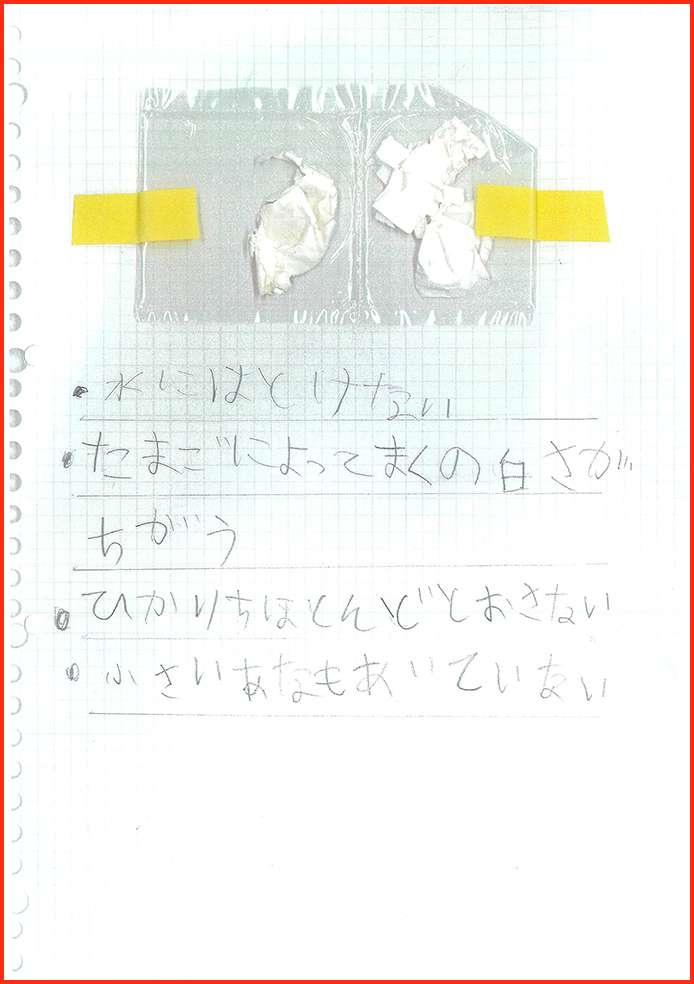 ・水にはとけない
・たまごによってまくの白さが
ちがう
・ひかりちほとんどとおさない
・小さいあなもあいていない